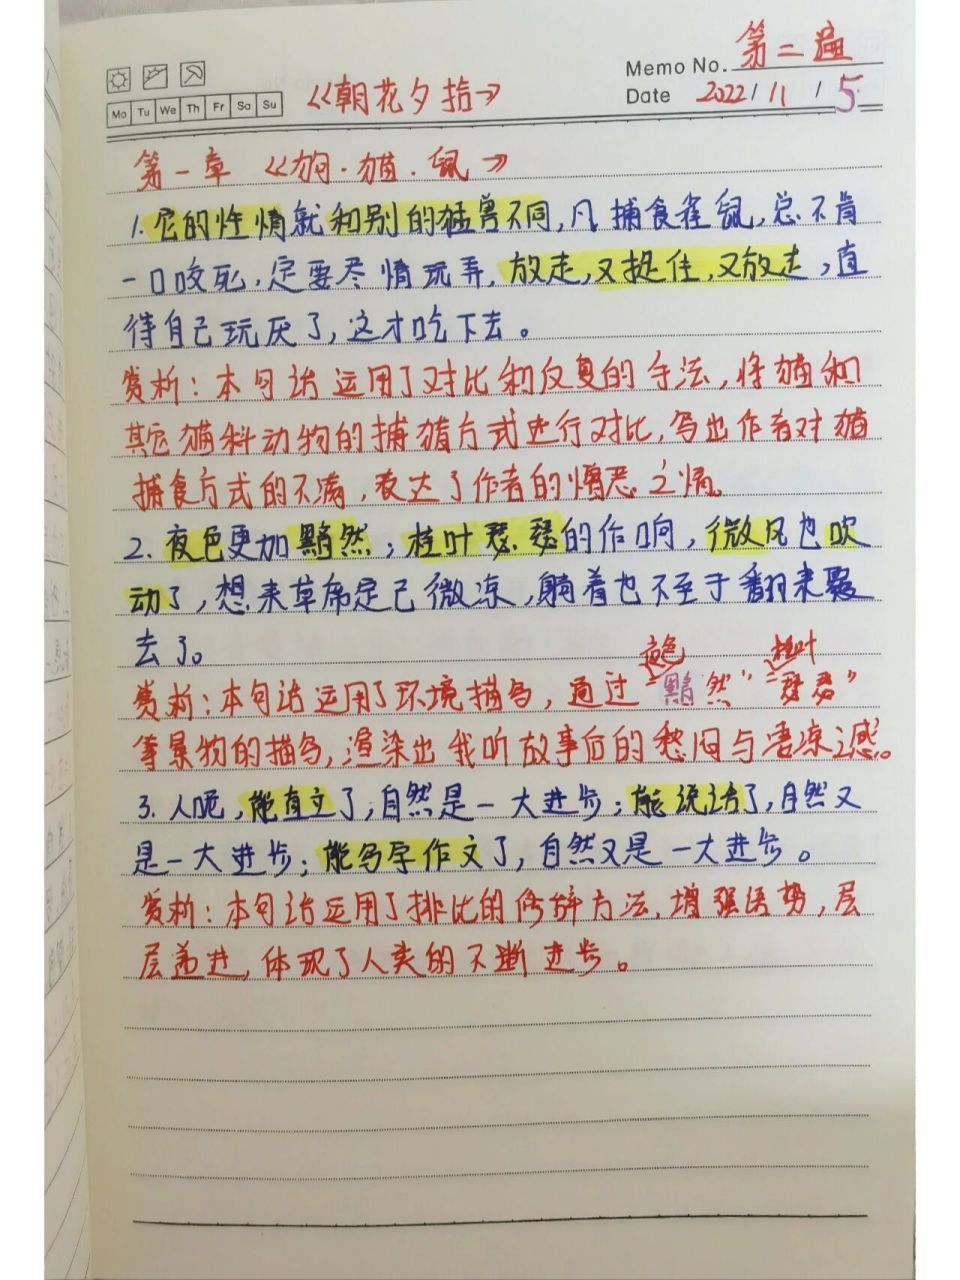 Memo No. 第二遍
Mo Tu We Th Fr Sa Su
《朝花夕拾》
Date 2022/11/5
第一章 《狗·猫·鼠》
1. 它的性情就和别的猛兽不同,凡捕食雀鼠,总不肯
一口咬死,定要尽情玩弄,放走,又捉住,又放走,直
待自己玩厌了,这才吃下去。
赏析:本句话运用了对比和反复的手法,将猫和
其它猫科动物的捕猎方式进行对比,写出作者对猫
捕食方式的不满,表达了作者的憎恶之情。
2. 夜色更加黯然;桂叶瑟瑟的作响,微风也吹
动了,想来草席定已微凉,躺着也不至于翻来覆
去了。
夜色 桂叶
赏析:本句话运用了环境描写,通过“黯然”“瑟瑟”
等景物的描写,渲染出我听故事后的愁闷与凄凉之感。
3. 人呢,能直立了,自然是一大进步;能说话了,自然又
是一大进步;能写字作文了,自然又是一大进步。
赏析:本句话运用了排比的修辞方法,增强语势,层
层递进,体现了人类的不断进步。